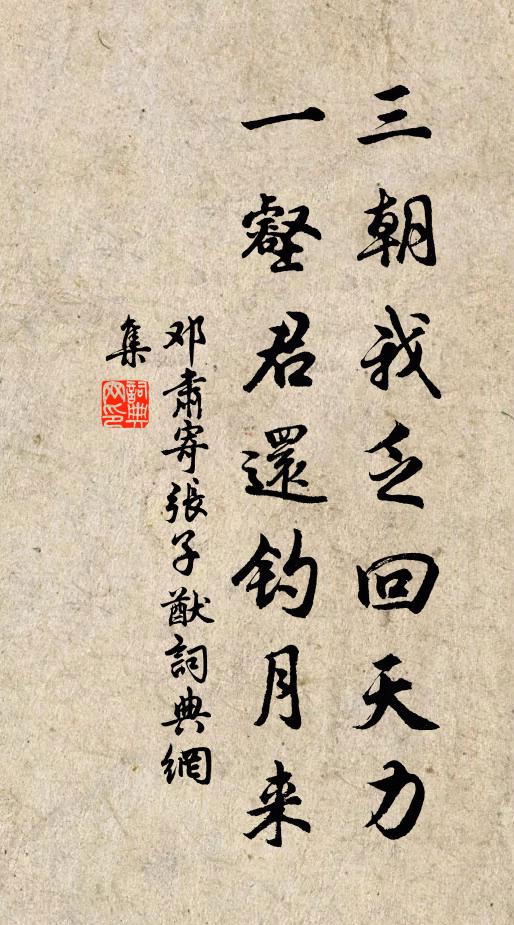 三朝我乏回天力
一壑君還钓月来
邓肃寄張子猷詞典網
集
詞典
网印